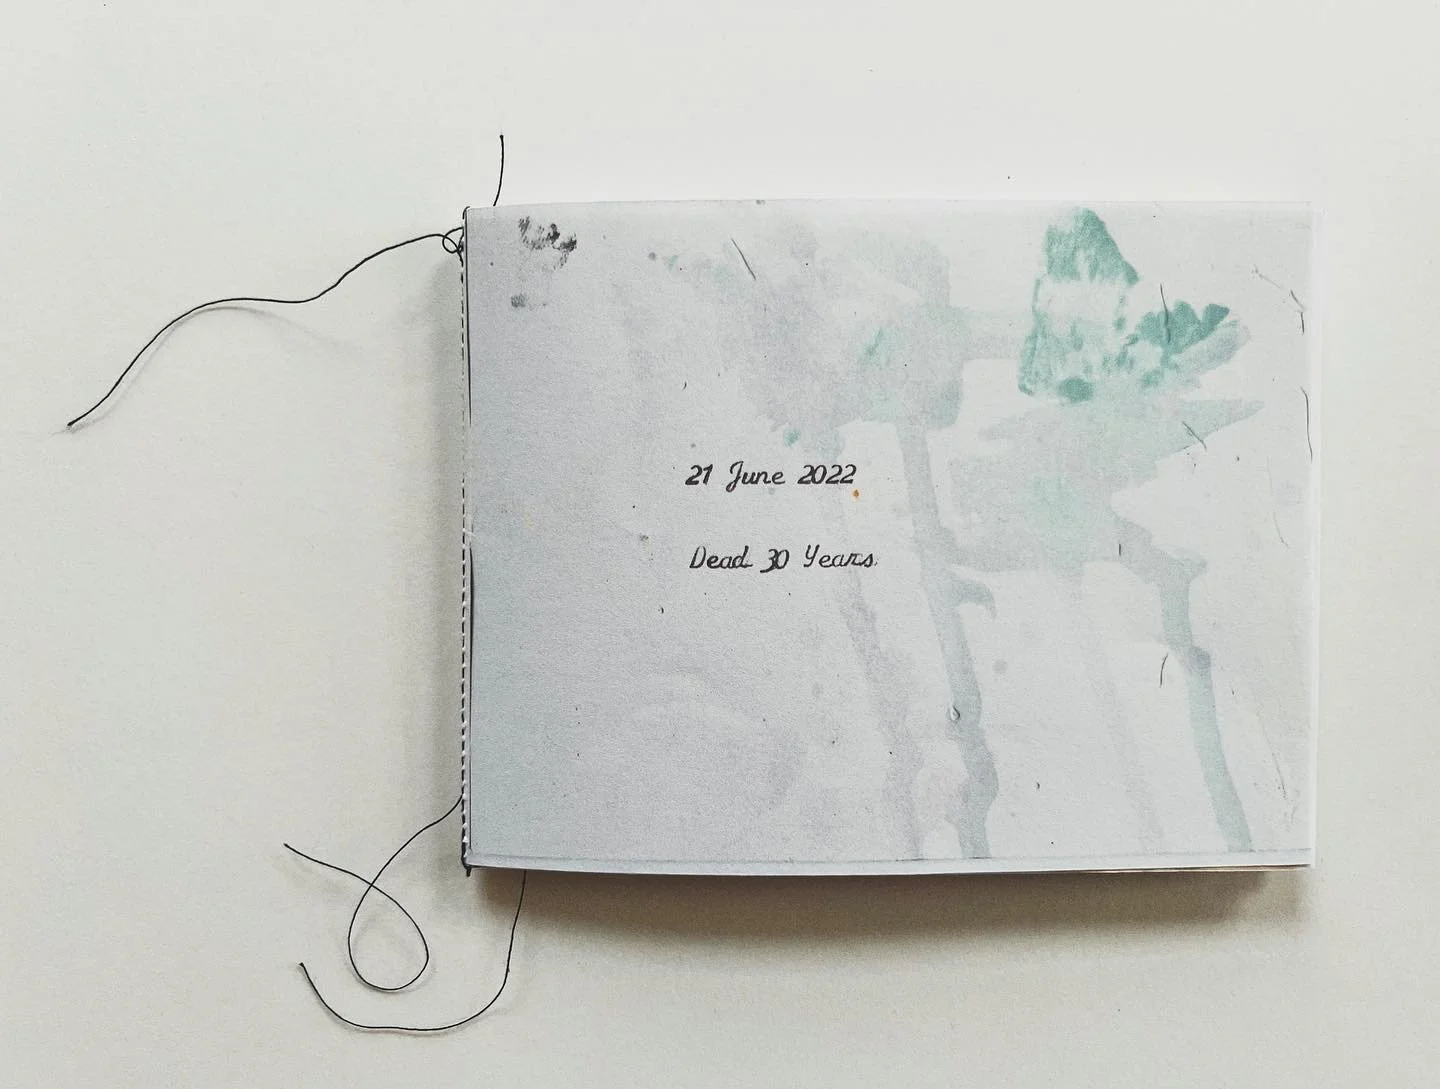 21 June 2022
Dead 30 Years.